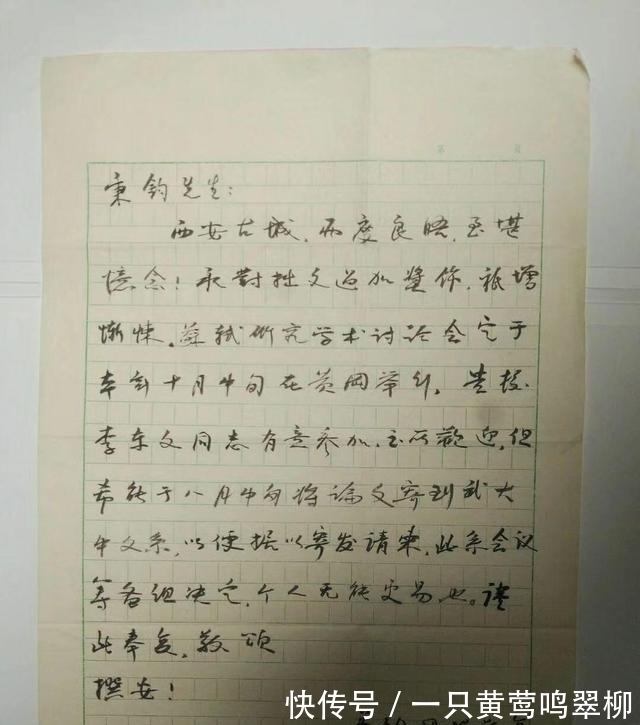 秉鈞先生：
西安古城，两度良晤，至堪
憶念！承對拙文過加獎飾，祗增
慚悚。蘇軾研究学术讨论会定于
本年十月中旬在黄岡举行。贵校
李东文同志有意参加，至所歡迎，但
希能于八月中旬将论文寄到武大
中文系，以便据以寄发请柬，此系会议
筹备组决定，个人无能变易也。谨
此奉复，敬頌
撰安！
快传号／一只黄莺鸣翠柳